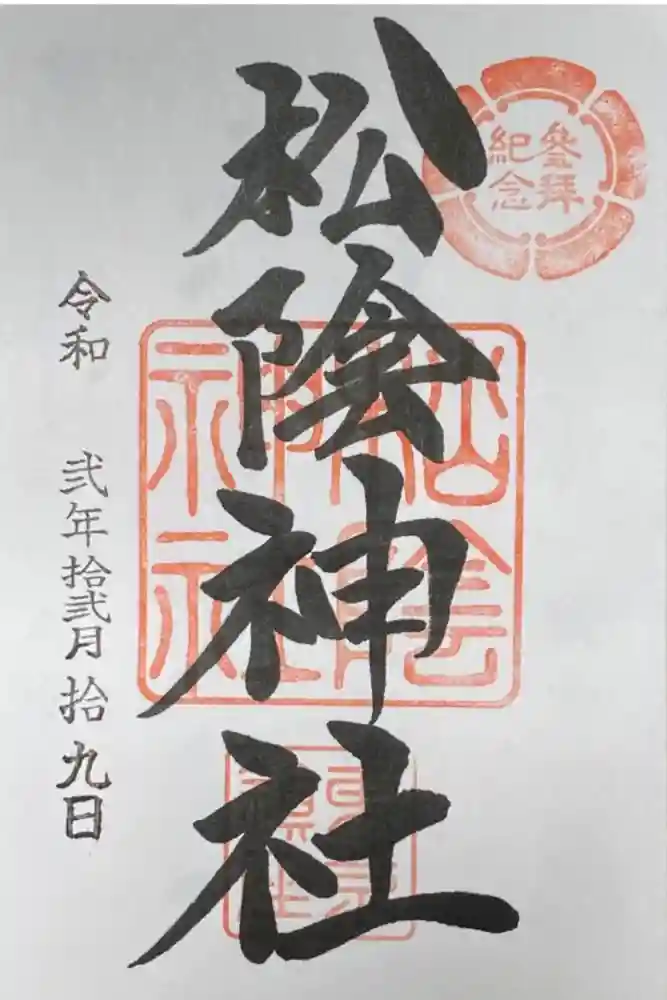 參拜
紀念
松陰神社
松陰
神社
令和 弐年拾弐月拾九日